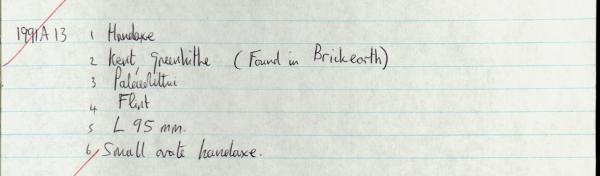 1991A13 1 Handaxe
2 Kent, Greenhithe (Found in Brickearth)
3 Palaeolithic
4 Flint
5 L 95 mm.
6 Small ovate handaxe.